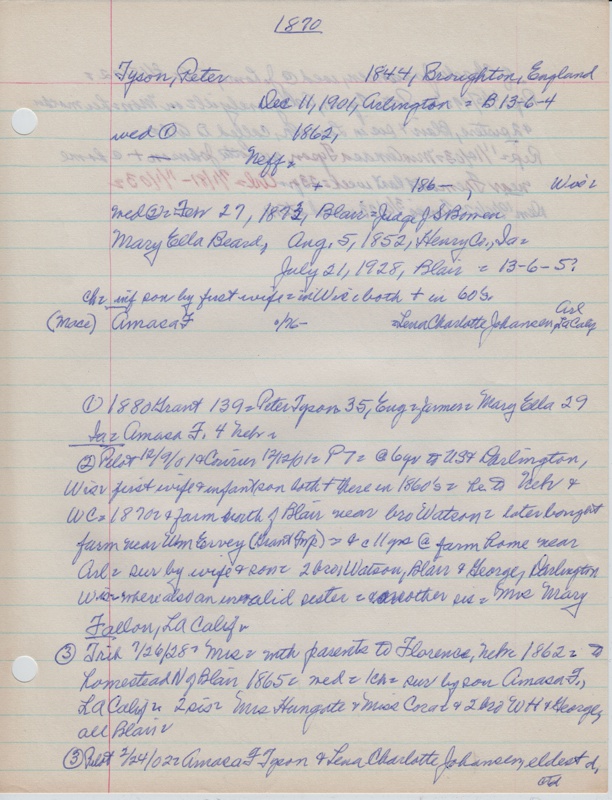 1870
Tyson, Peter 1844, Broughton, England
Dec 11, 1901, Arlington = B 13-6-4
wed ① 1862,
Neff,
+ 186-, Wis =
wed ② = Feb 27, 187, Blair = Judge J S Bowen
Mary Ella Beard, Aug. 5, 1852, Henry Co., Ia =
July 21, 1928, Blair = 13-6-5?
ch = inf son by first wife = in Wis = both + in 60's,
(Mase) Amasa F = Lena Charlotte Johansen, Arl
La Calif
① 1880 Grant 139 = Peter Tyson 35, Eng = farmer = Mary Ella 29
Ia = Amasa F. 4 Nebr =
② Pilot 12/9/01 & Courier 12/12/01 = P T = @ 6 yr to US & Darlington,
Wis = first wife & infant son both + there in 1860's = he to Nebr &
WC = 1870 = & farm north of Blair near bro Watson = later bought
farm near Wm Ervey (Grant Twp) = & c 11 yrs @ farm home near
Arl = sur by wife & son = 2 bros, Watson, Blair & George, Darlington
Wis = where also an invalid sister = another sis = Mrs Mary
Fallon, LA Calif
③ Trib 7/26/28 = Mis = with parents to Florence, Nebr 1862 = to
homestead N of Blair 1865 = wed = 1 ch = sur by son Amasa F.,
LA Calif = 2 sis = Mrs Hungate & Miss Cora & 2 bro W H & George,
all Blair
③ Pilot 2/24/02 = Amasa F Tyson & Lena Charlotte Johansen, eldest d,